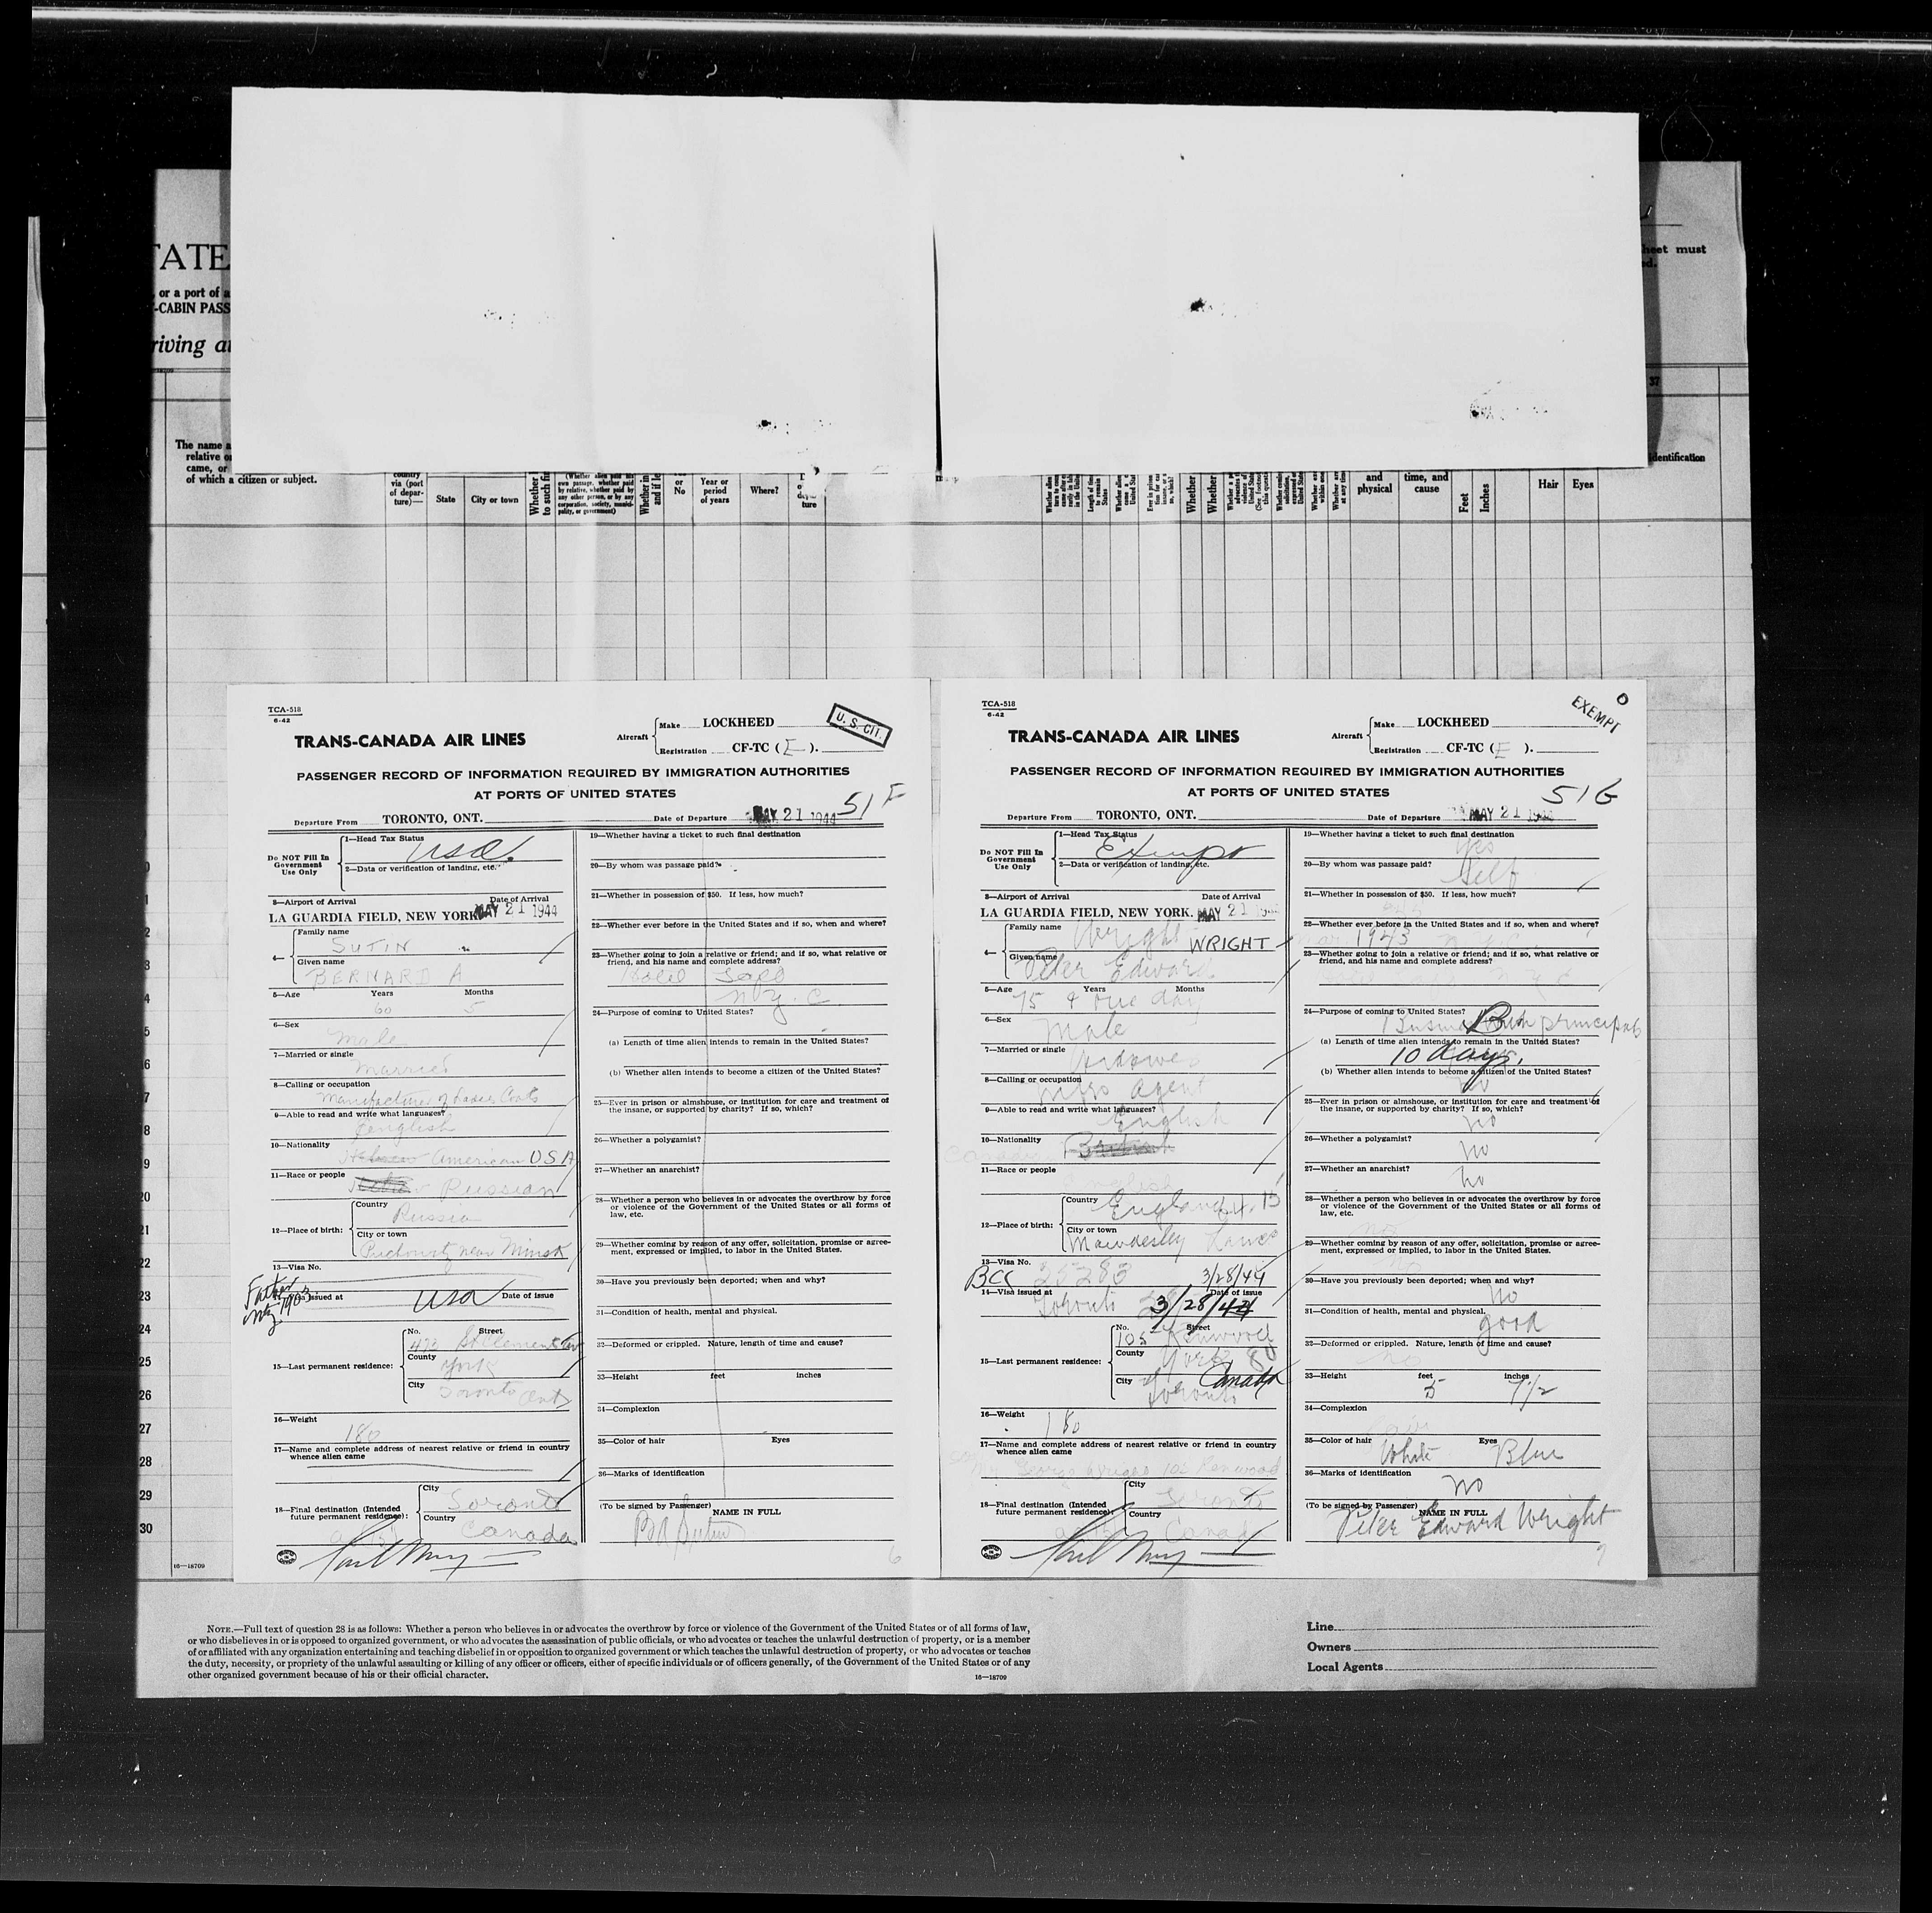 TATE
, or a port of a
-CABIN PASS
riving at
heet must
ed.
37
The name a
relative o
came, or
of which a citizen or subject.
country
via (port
of depar-
ture)—
State
City or town
Whether
to such fi
(Whether alien paid his
own passage, whether paid
by relative, whether paid by
any other person, or by any
corporation, society, munici-
pality, or government)
Whether in
and if le
or
No
Year or
period
of years
Where?
ture
Whether
Whether
and
physical
time, and
cause
Feet
Inches
Hair
Eyes
identification
TCA-518
6-42
TRANS-CANADA AIR LINES
Aircraft
Make LOCKHEED
Registration CF-TC ( E ).
U. S. CIT.
PASSENGER RECORD OF INFORMATION REQUIRED BY IMMIGRATION AUTHORITIES
AT PORTS OF UNITED STATES
51 F
Departure From TORONTO, ONT. Date of Departure MAY 21 1944
Do NOT Fill In
Government
Use Only
1—Head Tax Status
USC.
2—Data or verification of landing, etc.
3—Airport of Arrival Date of Arrival
LA GUARDIA FIELD, NEW YORK. MAY 21 1944
4—
Family name
SUTIN
Given name
BERNARD A
5—Age Years Months
60 5
6—Sex
Male
7—Married or single
Married
8—Calling or occupation
Manufacturer of Ladies Coats
9—Able to read and write what languages?
English
10—Nationality
Hebrew American USA
11—Race or people
Hebrew Russian
12—Place of birth:
Country
Russia
City or town
near Minsk
13—Visa No.
Father
NY 1903
14—Visa issued at Date of issue
USA
15—Last permanent residence:
No. Street
473 St Clements Av
County
York
City
Toronto Ont
16—Weight
180
17—Name and complete address of nearest relative or friend in country
whence alien came
18—Final destination (Intended
future permanent residence):
City
Toronto
Country
Canada
19—Whether having a ticket to such final destination
20—By whom was passage paid?
21—Whether in possession of $50. If less, how much?
22—Whether ever before in the United States and if so, when and where?
23—Whether going to join a relative or friend; and if so, what relative or
friend, and his name and complete address?
Hotel
N.Y.C
24—Purpose of coming to United States?
(a) Length of time alien intends to remain in the United States?
(b) Whether alien intends to become a citizen of the United States?
25—Ever in prison or almshouse, or institution for care and treatment of
the insane, or supported by charity? If so, which?
26—Whether a polygamist?
27—Whether an anarchist?
28—Whether a person who believes in or advocates the overthrow by force
or violence of the Government of the United States or all forms of
law, etc.
29—Whether coming by reason of any offer, solicitation, promise or agree-
ment, expressed or implied, to labor in the United States.
30—Have you previously been deported; when and why?
31—Condition of health, mental and physical.
32—Deformed or crippled. Nature, length of time and cause?
33—Height feet inches
34—Complexion
35—Color of hair Eyes
36—Marks of identification
(To be signed by Passenger)
NAME IN FULL
BA Sutin
6
TCA-518
6-42
TRANS-CANADA AIR LINES
Aircraft
Make LOCKHEED
Registration CF-TC ( E ).
EXEMPT
0
PASSENGER RECORD OF INFORMATION REQUIRED BY IMMIGRATION AUTHORITIES
AT PORTS OF UNITED STATES
51 G
Departure From TORONTO, ONT. Date of Departure MAY 21 1944
Do NOT Fill In
Government
Use Only
1—Head Tax Status
Exempt
2—Data or verification of landing, etc.
3—Airport of Arrival Date of Arrival
LA GUARDIA FIELD, NEW YORK. MAY 21
4—
Family name
Wright WRIGHT
Given name
Peter Edward
5—Age Years Months
75 & one day
6—Sex
Male
7—Married or single
Widower
8—Calling or occupation
Mfgs Agent
9—Able to read and write what languages?
English
10—Nationality
Canadian British
11—Race or people
English
12—Place of birth:
Country
England
City or town
Mawdesley Lancs
13—Visa No.
BCC 25283 3/28/44
14—Visa issued at Date of issue
Toronto 3/28/44
15—Last permanent residence:
No. Street
105 Kenwood
County
York
City
Toronto Canada
16—Weight
180
17—Name and complete address of nearest relative or friend in country
whence alien came
George Wright 105 Kenwood
18—Final destination (Intended
future permanent residence):
City
Toronto
Country
Canada
19—Whether having a ticket to such final destination
Yes
20—By whom was passage paid?
Self
21—Whether in possession of $50. If less, how much?
22—Whether ever before in the United States and if so, when and where?
1943
23—Whether going to join a relative or friend; and if so, what relative or
friend, and his name and complete address?
24—Purpose of coming to United States?
Business with principals
B
(a) Length of time alien intends to remain in the United States?
10 days.
(b) Whether alien intends to become a citizen of the United States?
No
25—Ever in prison or almshouse, or institution for care and treatment of
the insane, or supported by charity? If so, which?
No
26—Whether a polygamist?
No
27—Whether an anarchist?
No
28—Whether a person who believes in or advocates the overthrow by force
or violence of the Government of the United States or all forms of
law, etc.
No
29—Whether coming by reason of any offer, solicitation, promise or agree-
ment, expressed or implied, to labor in the United States.
No
30—Have you previously been deported; when and why?
No
31—Condition of health, mental and physical.
good
32—Deformed or crippled. Nature, length of time and cause?
No
33—Height feet inches
5 7 1/2
34—Complexion
Fair
35—Color of hair Eyes
White Blue
36—Marks of identification
No
(To be signed by Passenger)
NAME IN FULL
Peter Edward Wright
7
20
21
22
23
24
25
26
27
28
29
30
16—18709
NOTE.—Full text of question 28 is as follows: Whether a person who believes in or advocates the overthrow by force or violence of the Government of the United States or of all forms of law,
or who disbelieves in or is opposed to organized government, or who advocates the assassination of public officials, or who advocates or teaches the unlawful destruction of property, or is a member
of or affiliated with any organization entertaining and teaching disbelief in or opposition to organized government or which teaches the unlawful destruction of property, or who advocates or teaches
the duty, necessity, or propriety of the unlawful assaulting or killing of any officer or officers, either of specific individuals or of officers generally, of the Government of the United States or of any
other organized government because of his or their official character.
16—18709
Line
Owners
Local Agents